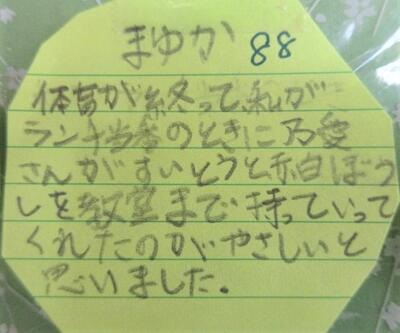 まゆか 88
体育が終って、私が
ランチ当番のときに乃愛
さんがすいとうと赤白ぼう
しを教室まで持っていって
くれたのがやさしいと
思いました.